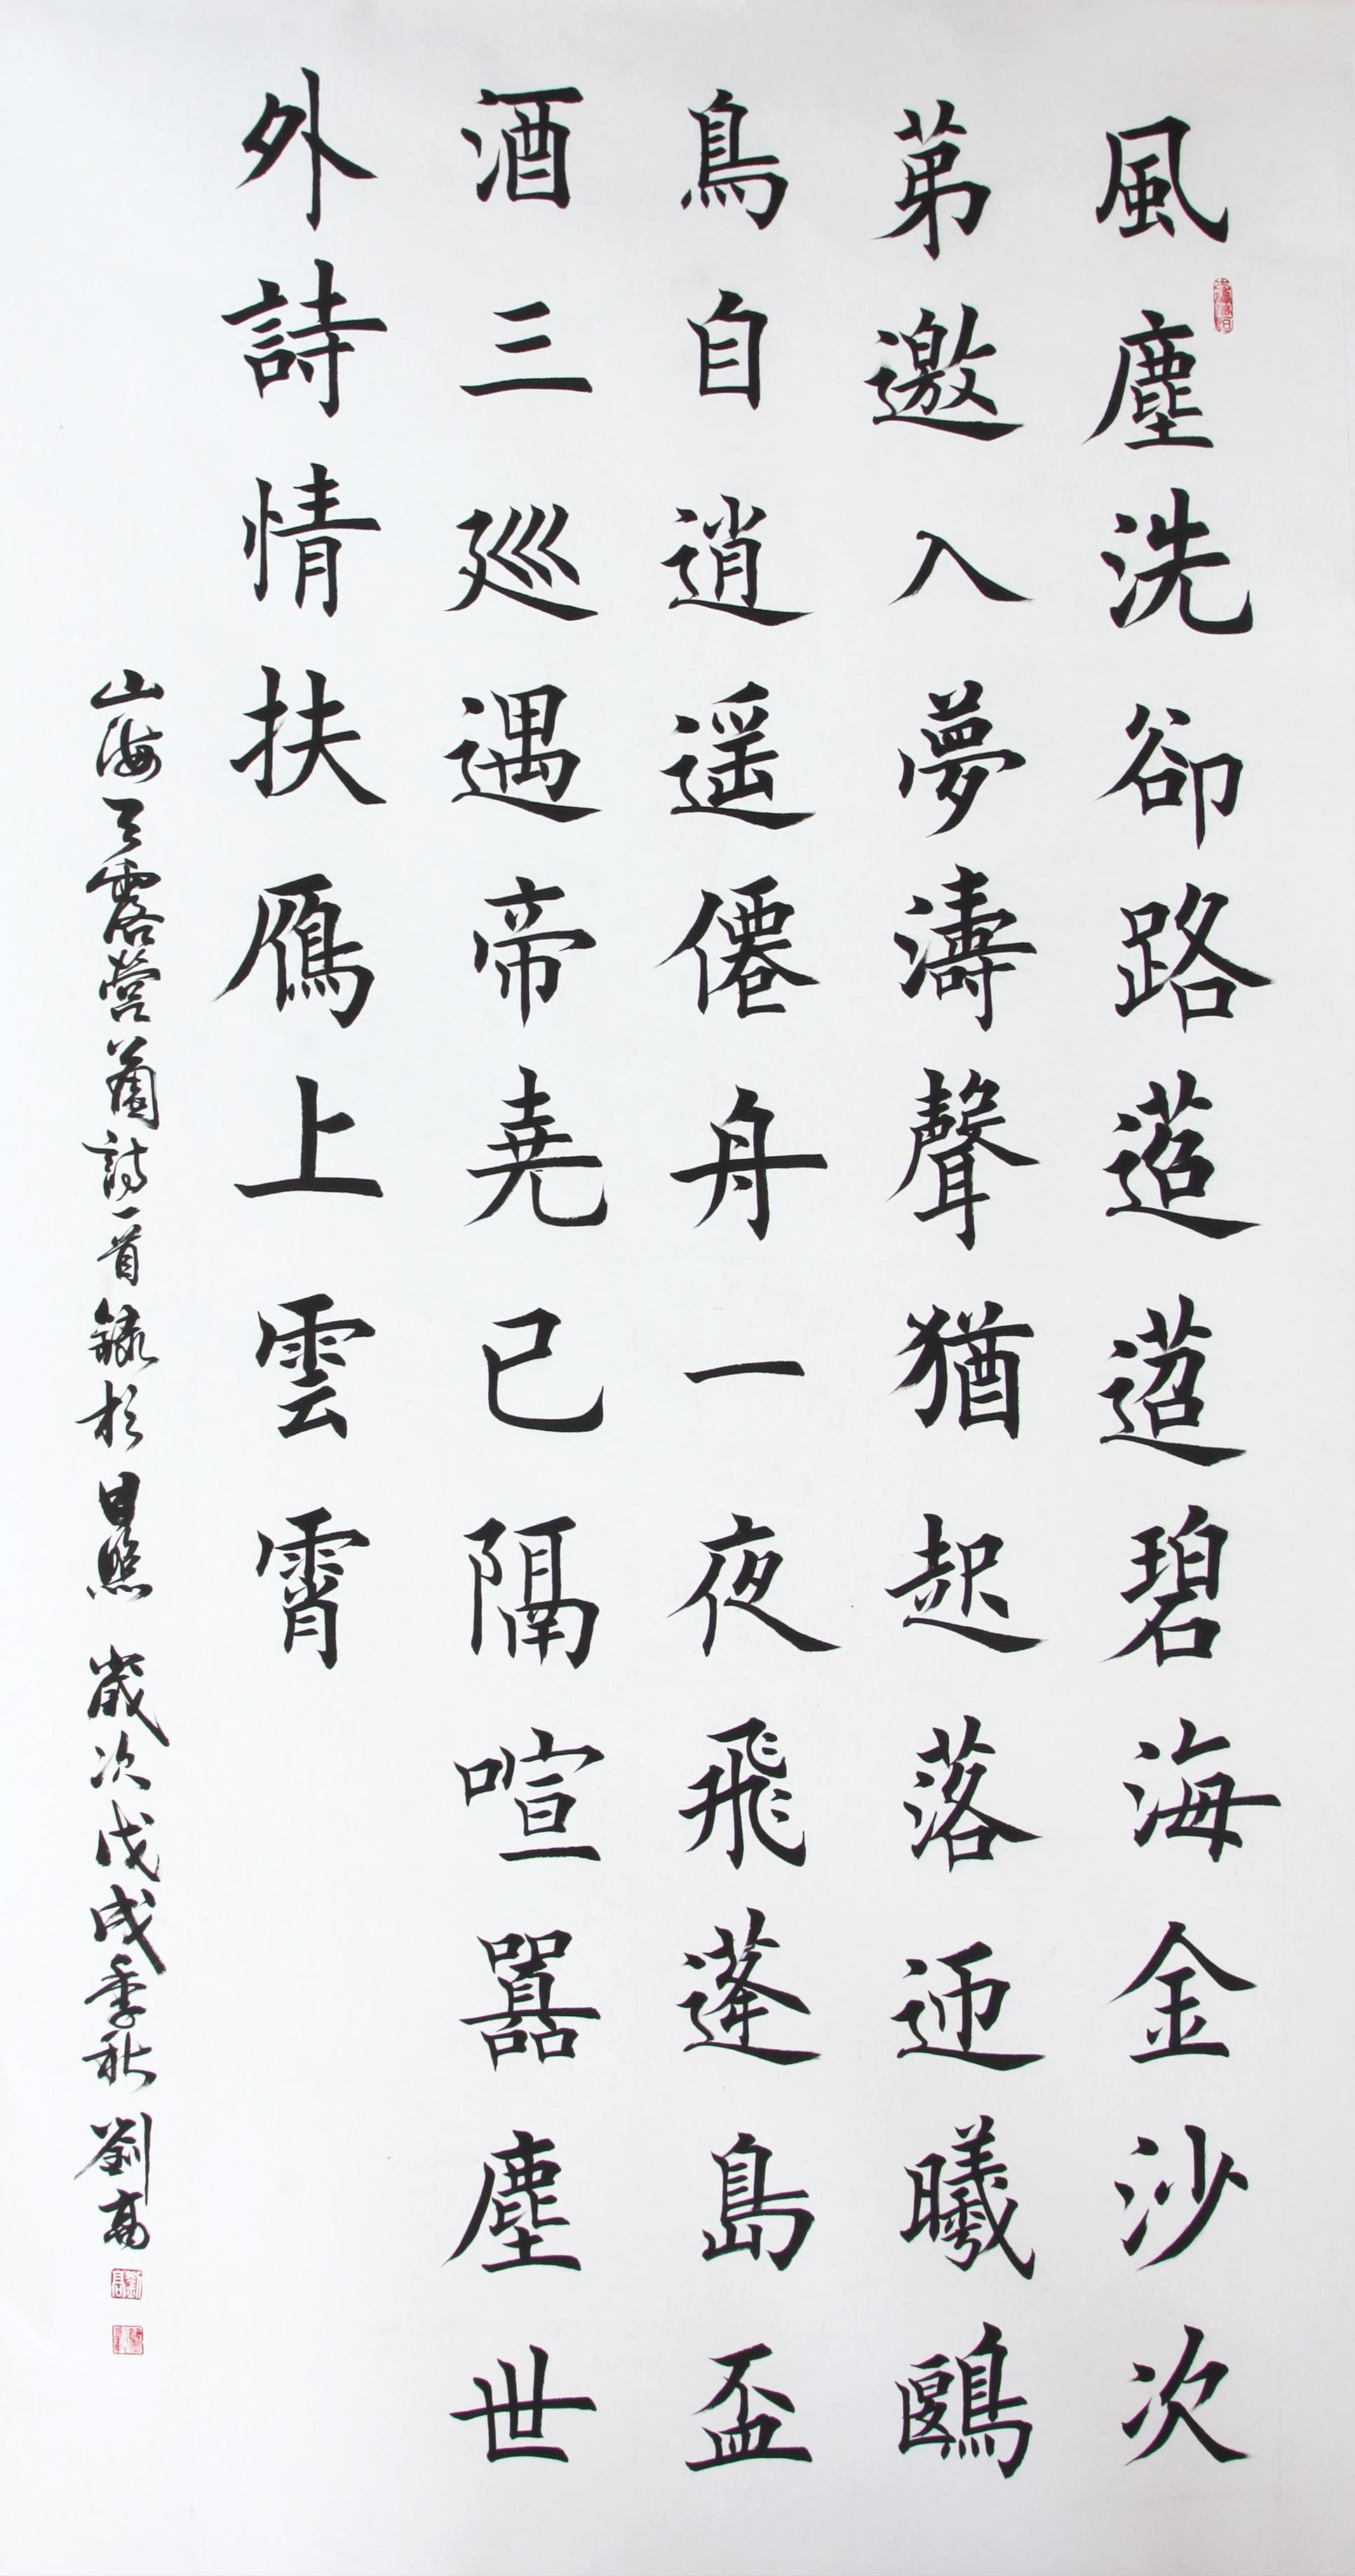 風塵洗卻路茗茗碧海金沙次
苐邀入夢濤聲猶起落迊曦鷗
鳥自逍遥僊舟一夜飛蓬島盃
酒三廵遇帝堯已隔喧囂塵世
外詩情扶鴈上雲霄
山海天露營薗詩一首録於日照 歲次戊戌季秋 劉高